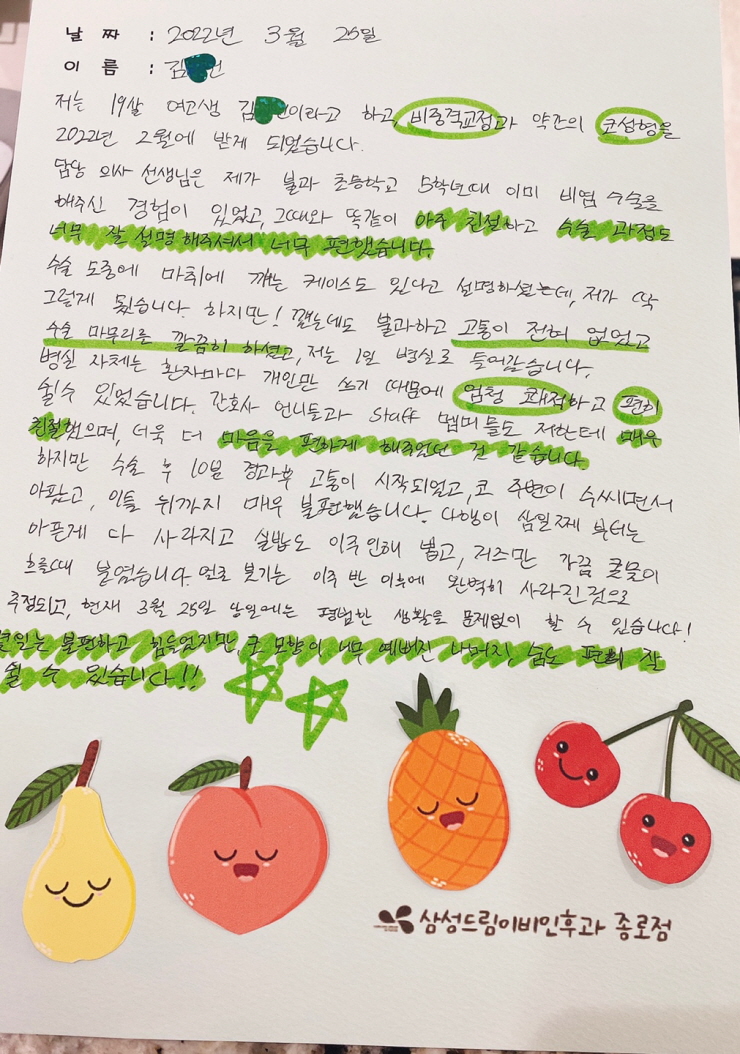 날 짜 : 2022년 3월 25일
이 름 : 김 언
저는 19살 여고생 김 언이라고 하고, 비중격교정과 약간의 코성형을
2022년 2월에 받게 되었습니다.
담당 의사 선생님은 제가 불과 초등학교 5학년때 이미 비염 수술을
해주신 경험이 있었고, 그때와 똑같이 아주 친절하고 수술 과정도
너무 잘 설명해주셔서 너무 편했습니다.
수술 도중에 마취에 깨는 케이스도 있다고 설명하셨는데, 제가 딱
그렇게 됬습니다. 하지만! 깼는데도 불과하고 고통이 전혀 없었고
수술 마무리를 깔끔히 하셨고, 저는 1일 병실로 들어갔습니다.
병실 자체는 환자마다 개인만 쓰기 때문에 엄청 쾌적하고 편히
쉴수 있었습니다. 간호사 언니들과 staff 멤버들도 저한테 매우
친절했으며, 더욱 더 마음을 편하게 해주었던 것 같습니다.
하지만 수술 후 10분 경과후 고통이 시작되었고, 코 주변이 쑤씨면서
아팠고, 이틀 뒤까지 매우 불편했습니다. 다행이 삼일째 부터는
아픈게 다 사라지고 실밥도 이주안해 뽑고, 저즈만 가끔 콧물이
흐를때 불염습니다. 얼로 붓기는 이주 반 이후에 완벽히 사라진것으로
추정되고, 현재 3월 25일 당일에는 평범한 생활을 문제없이 할 수 있습니다!
몇일는 불편하고 힘들었지만, 코 모양이 너무 예뻐진 나머지, 숨도 편히 잘
쉴 수 있습니다!!
삼성드림이비인후과 종로점